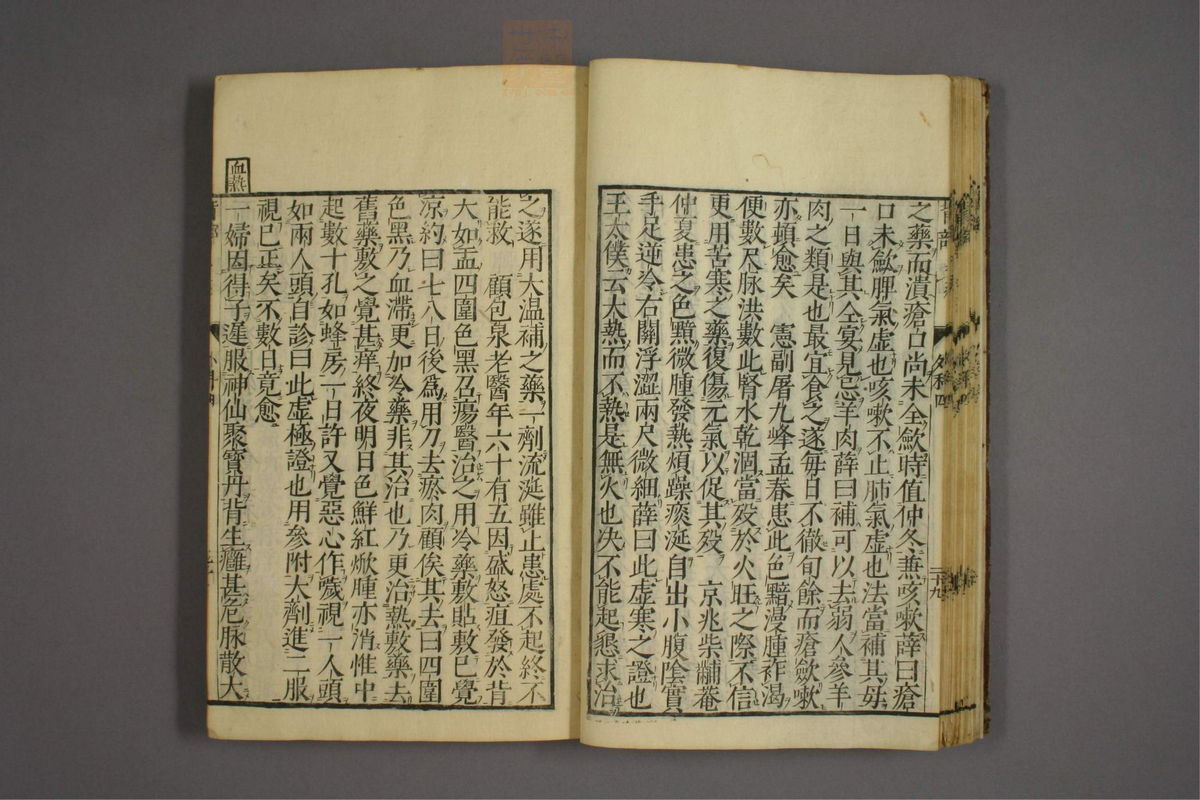 之藥而潰瘡口尚未全斂時值仲冬兼咳嗽薛曰瘡
口未斂脾氣虛也咳嗽不止肺氣虛也法當補其母
一日與其仝宴見忌羊肉薛曰補可以去弱人參羊
肉之類是也最宜食之遂每日不徹旬餘而瘡斂嗽
亦頓愈矣　憲副屠九峰孟春患此色黯漫腫作渴
便數尺脉洪數此腎水乾涸當歿於火旺之際不信
更用苦寒之藥復傷元氣以促其歿　京兆柴黼菴
仲夏患之色黯微腫發熱煩躁痰涎自出小腹陰實
手足逆冷右關浮澀兩尺微細薛曰此虛寒之證也
王太僕云大熱而不熱是無火也决不能起懇求治
之遂用大温補之藥一劑流涎雖止患處不起終不
能救　顧包泉老醫年六十有五因盛怒疽發於背
大如盂四圍色黑召瘍醫治之用冷藥敷貼敷已覺
凉約曰七八日後爲用刀去瘀肉顧俟其去曰四圍
色黑乃血滯更加冷藥非其治也乃更治熱敷藥去
舊藥敷之覺甚痒終夜明日色鮮紅焮腫亦消惟中
起數十孔如蜂房一日許又覺惡心作噦視一人頭
如兩人頭自診曰此虛極證也用參附大劑進二服
視已正矣不數日竟愈
血熱
一婦因得子遲服神仙聚寶丹背生癰甚危脉散大
外科四
二十九